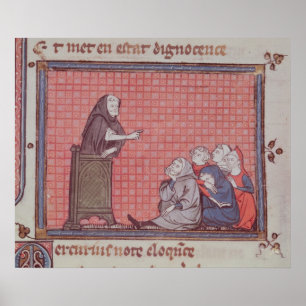 Et met en estat dignocence
ercurius note eloq̃nce